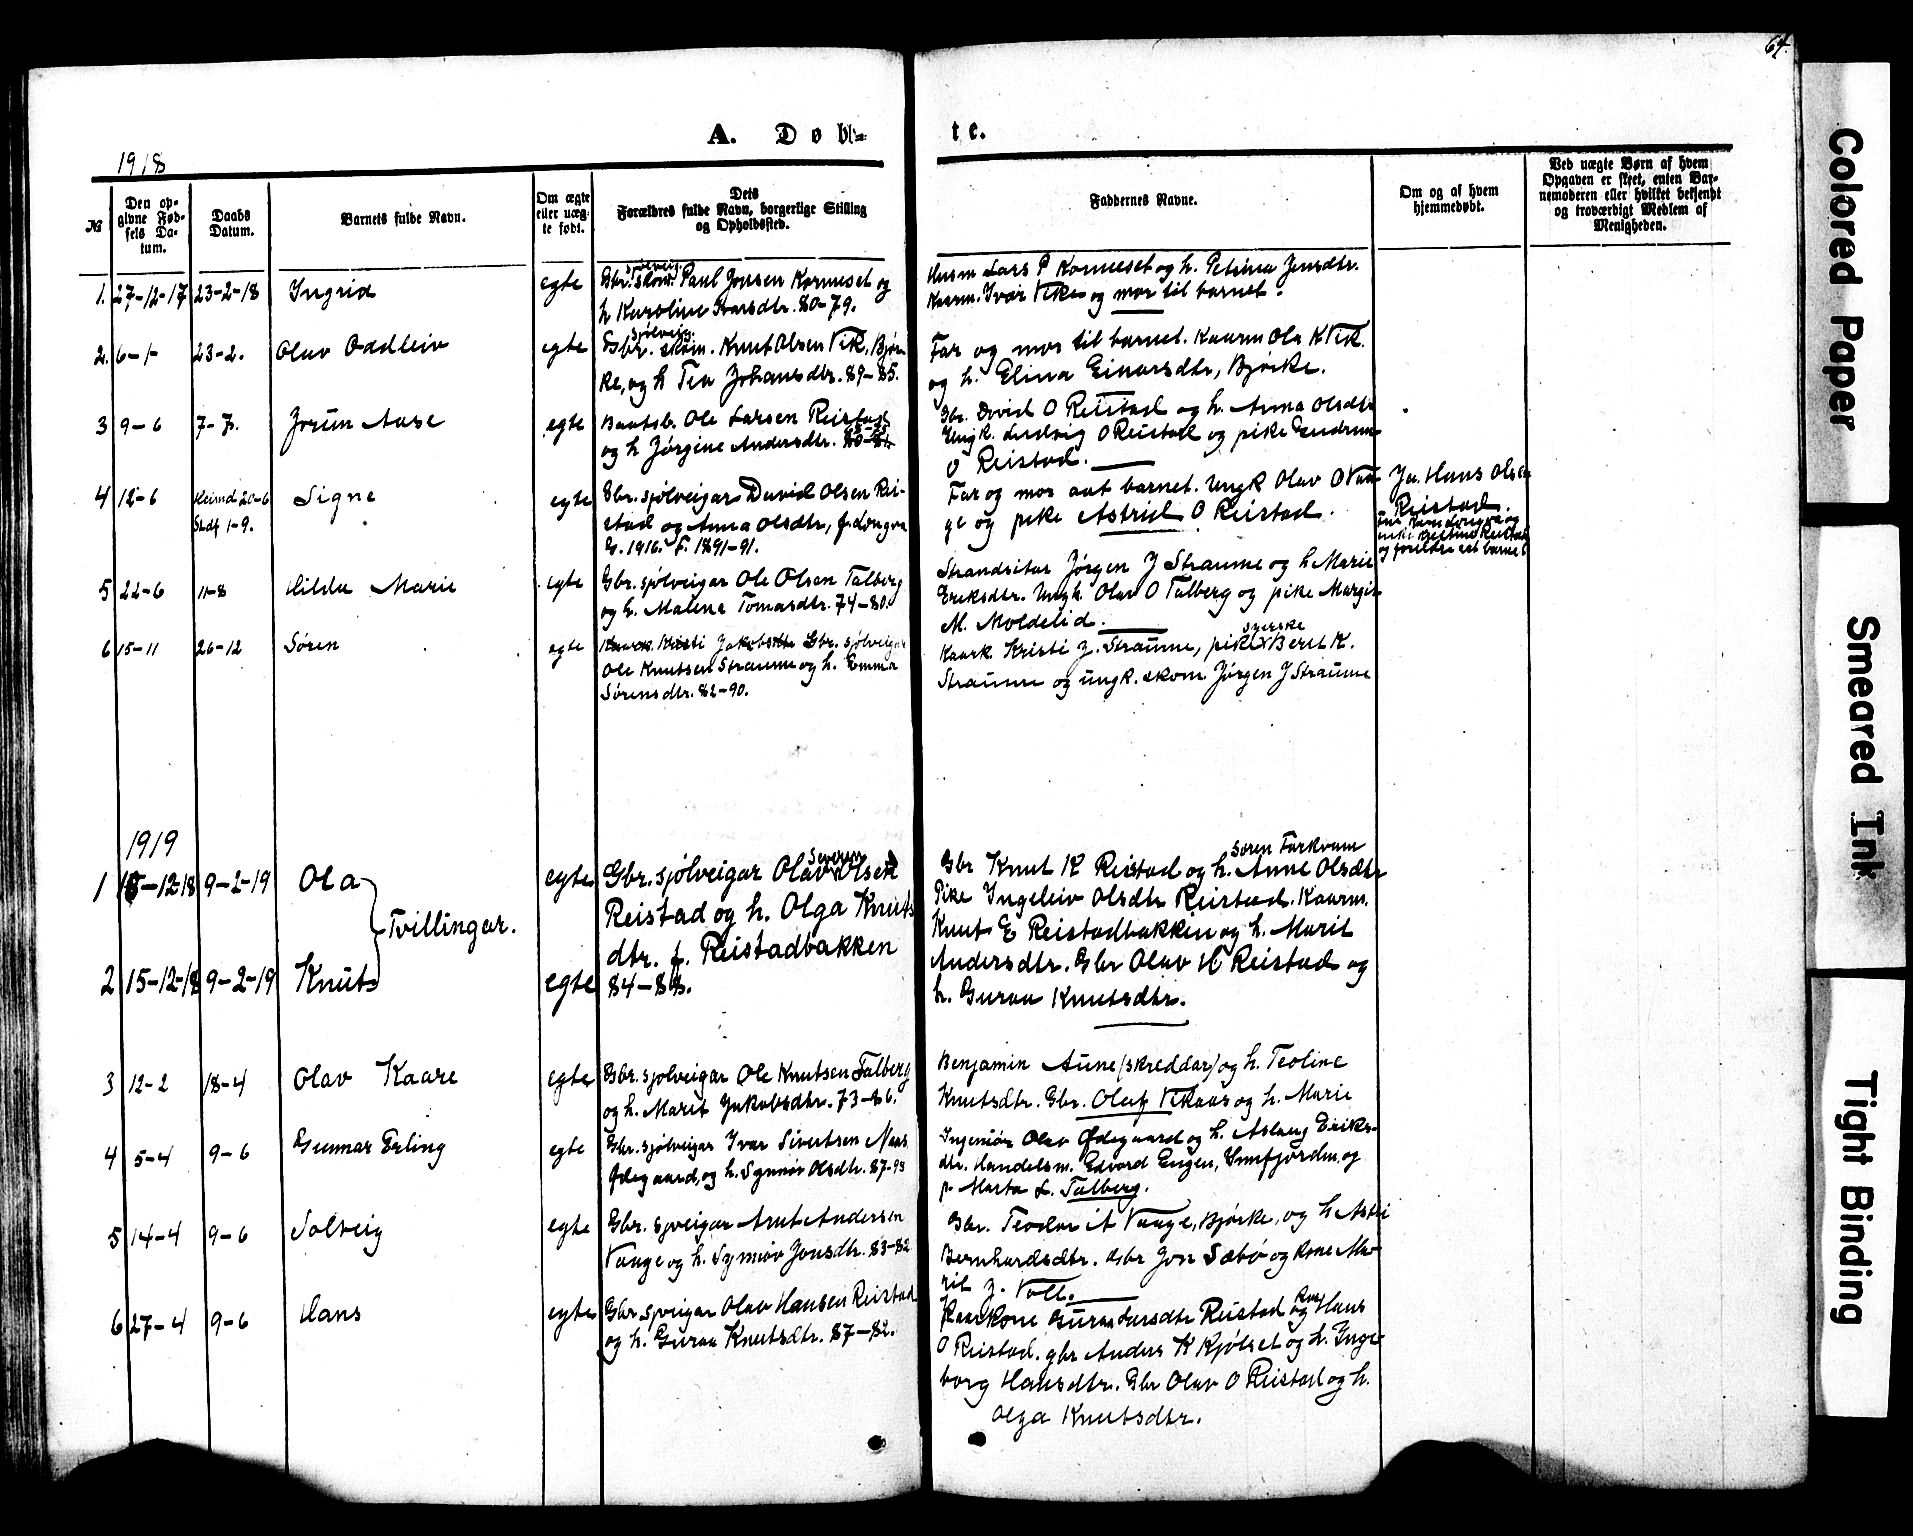 64.
A. Døb-
te.
1918
No
Den op-
givne Fød-
sels Da-
tum.
Daabs
Datum.
Barnets fulde Navn.
Om ægte
eller uæg-
te født.
Dets
Forældres fulde Navn, borgerlige Stilling
og Opholdssted.
Faddernes Navne.
Om og af hvem
hjemmedøbt.
Ved uægte Børn af hvem
Opgaven er skeet, enten Bar-
nemoderen eller hvilket bekjendt
og troværdigt Medlem af
Menigheden.
1. 27-12-17 23-2-18 Ingrid egte
sjølveig.
Gbr. skom. Paul Jonsen Korneset og
h Karoline Ivarsdtr. 80-79.
Husm Lars P Korneset og h. Petrina Jensdtr.
Kaarm. Ivar Vike og mor til barnet.
2. 6-1- 23-2. Olav Oddleiv egte
sjølveig.
Gbr. skom. Knut Olsen Vik, Bjør-
ke, og h Tea Johansdtr. 89-85.
Far og mor til barnet. Kaarm Ola K Vik
og h. Elina Einarsdtr, Bjørke.
3 9-6 7-7. Jorun Aase egte
Baatsb. Ole Larsen Reistad
og h Jørgine Andersdtr.
Gbr. David O Reistad og h. Anna Olsdtr
Ungk. Ludvig O Reistad og pike Gudrun
O Reistad.
4 12-6 Heimd 20-6
Stadf 1-9.
Signe egte
Gbr. sjølveigar David Olsen Rei-
stad og Anna Olsdtr, f. Longva
G. 1916. F. 1891-91.
Far og mor aat barnet. Ungk Olav O Vaa-
ge og pike Astrid O Reistad.
Ja. Hans Olsen
Reistad.
og foreldre aat barnet
5 22-6 11-8 Hilda Marie egte
Gbr. sjølveigar Ole Olsen Talberg
og h. Malene Tomasdtr. 74-80.
Strandsitar Jørgen J Straume og h Marie
Eriksdtr. Ungk. Olav O Talberg og pike Margit
M. Moldelid.
6 15-11 26-12 Søren egte
Kaark. Kristi Jakobsdtr Gbr. sjølveigar
Ole Knutsen Straume og h. Emma
Sørensdtr. 82-90.
syerske
Kaark. Kristi J. Straume, pike Berit K.
Straume og ungk. skom Jørgen J Straume
1919
1 15-12-18 9-2-19 Ola egte
Tvillingar.
2 15-12-18 9-2-19 Knut egte
Severin
Gbr. sjølveigar Olav Olsen
Reistad og h. Olga Knuts
dtr. f. Reistadbakken
84-88.
Søren Farkvam
Gbr Knut K Reistad og h. Anne Olsdtr
Pike Ingeleiv Olsdtr Reistad. Kaarm.
Knut E Reistadbakken og h. Marit
Andersdtr. Gbr Olav H Reistad og
h. Guraa Knutsdtr.
3 12-2 18-4 Olav Kaare egte
Gbr. sjølveigar Ole Knutsen Talberg
og h. Marit Jakobsdtr. 73-86.
Benjamin Aune (skreddar) og h. Teoline
Knutsdtr. Gbr. Oluf Vikaas og h. Marie
4 5-4 9-6 Gunnar Erling egte
Gbr. sjølveigar Ivar Sivertsen Naas
Ødegaard, og h. Synnøv Olsdtr. 87-93
Ingeniør Olav Ødegaard og h. Aslaug Eriks-
dtr. Handelsm. Edvard Engen, og
p. Marta L. Talberg.
5 14-4 9-6 Solveig egte
Gbr. sjveigar Arnt Andersen
Vaage og h. Synnøv Jonsdtr. 83-82
Gbr. Teodor A Vaage, Bjørke, og h Astri
Bernhardsdtr. Gbr Jon Sæbø og kone Ma-
rit J. Voll.
6 27-4 9-6 Hans egte
Gbr. sjveigar Olav Hansen Reistad
og h. Guraa Knutsdtr. 87-82.
Kaarkone Guraa Larsdtr Reistad og Hans
O Reistad. gbr Anders K Kjølset og h. Inge-
borg Hansdtr. Gbr Olav O Reistad og h.
Olga Knutsdtr.
Colored Paper
Smeared Ink
Tight Binding